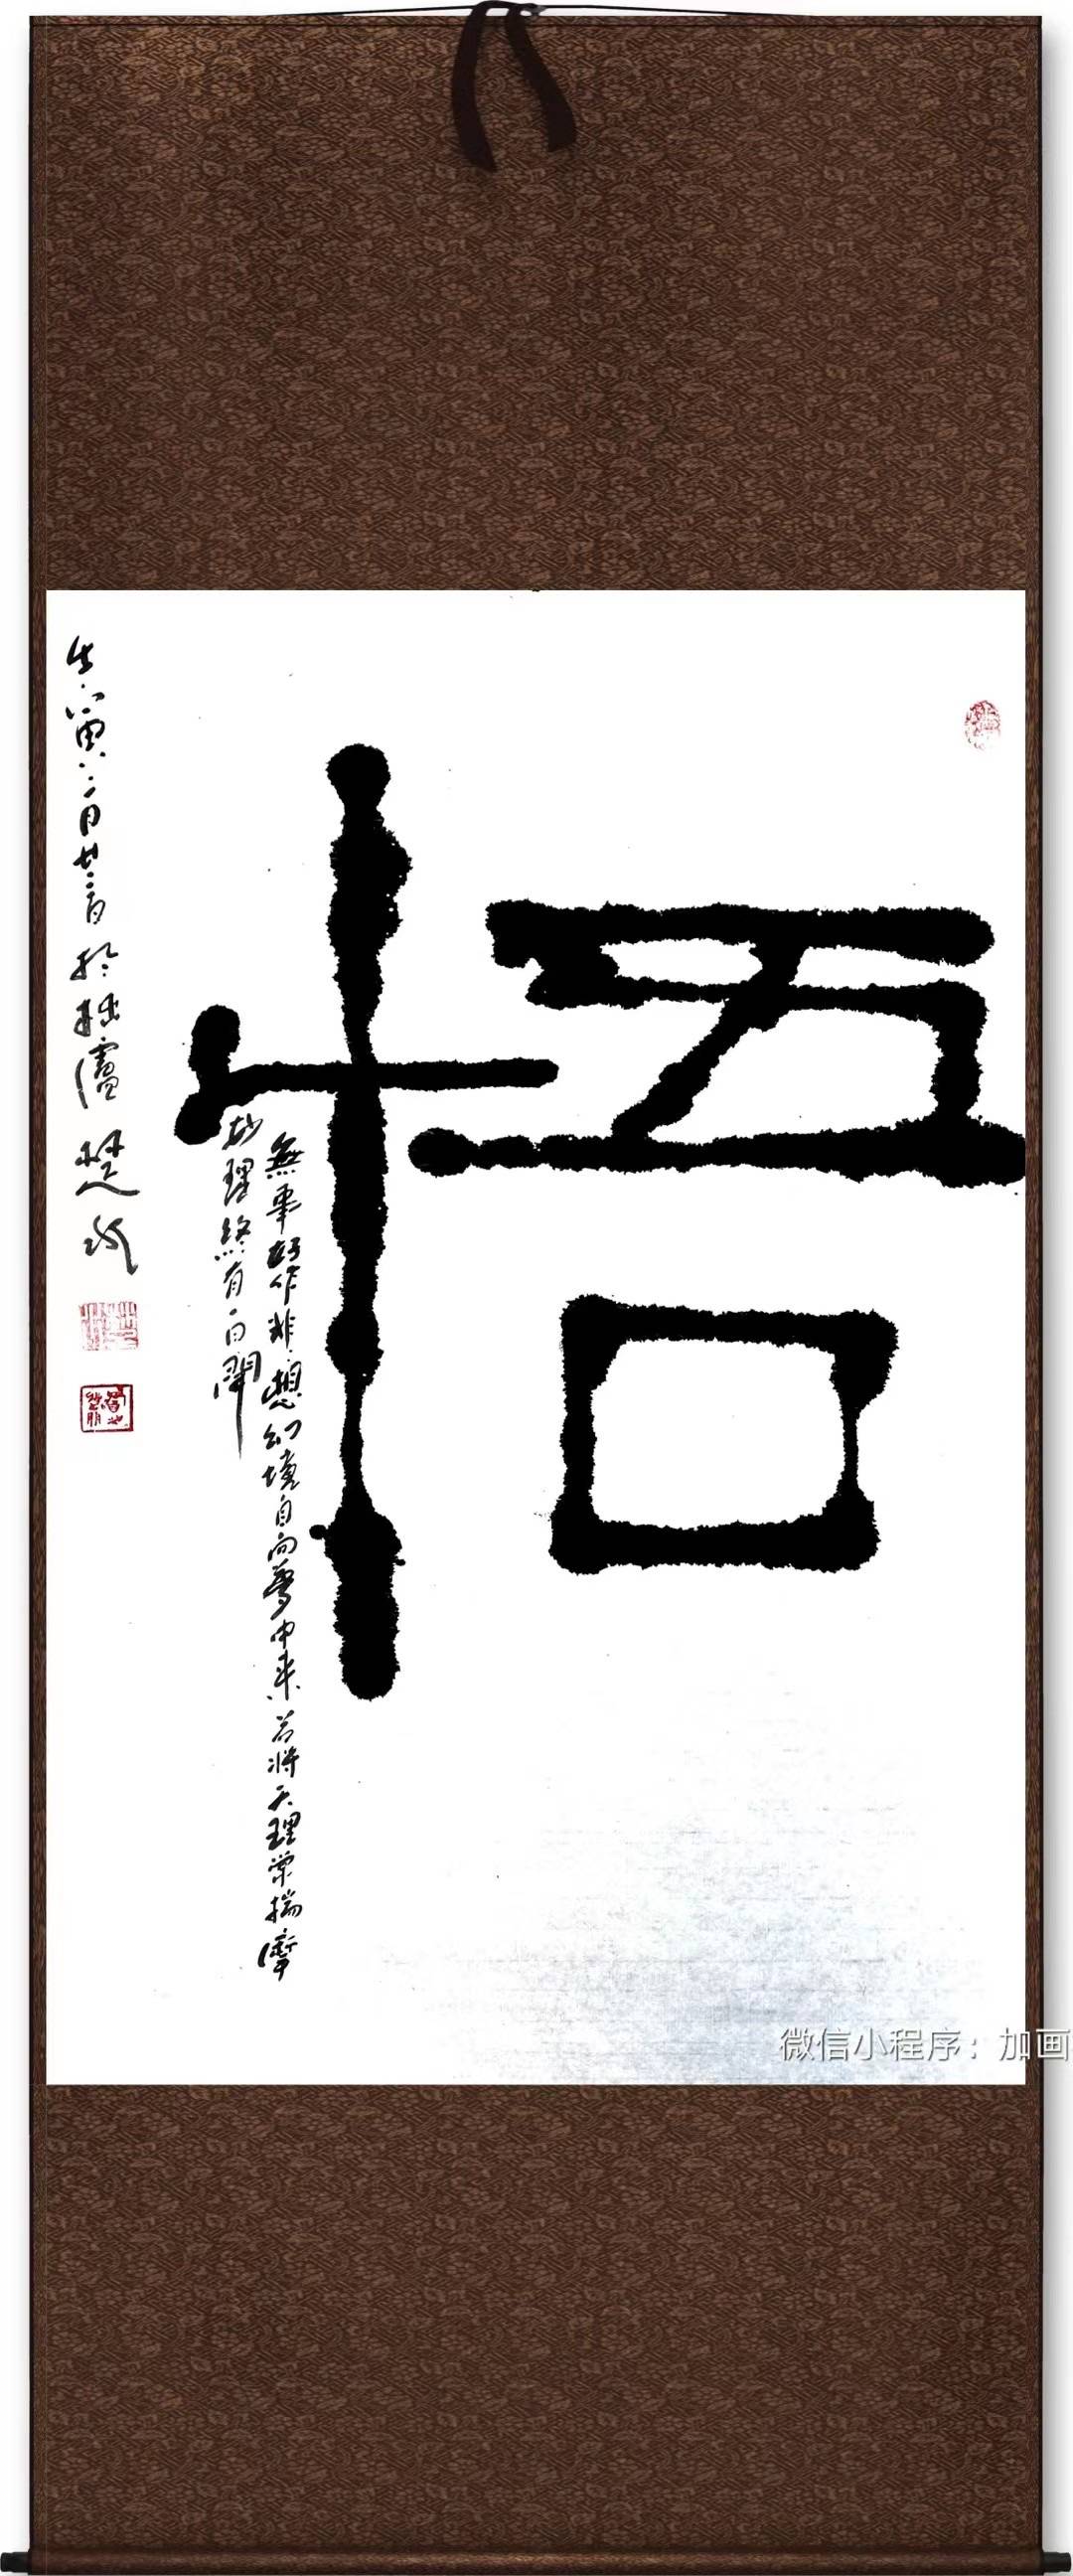 悟
無事好作非想幻境自向夢中来若将天理常揣摩
妙理終有一日開
壬寅二月廿二日於拙廬楚
微信小程序：加画